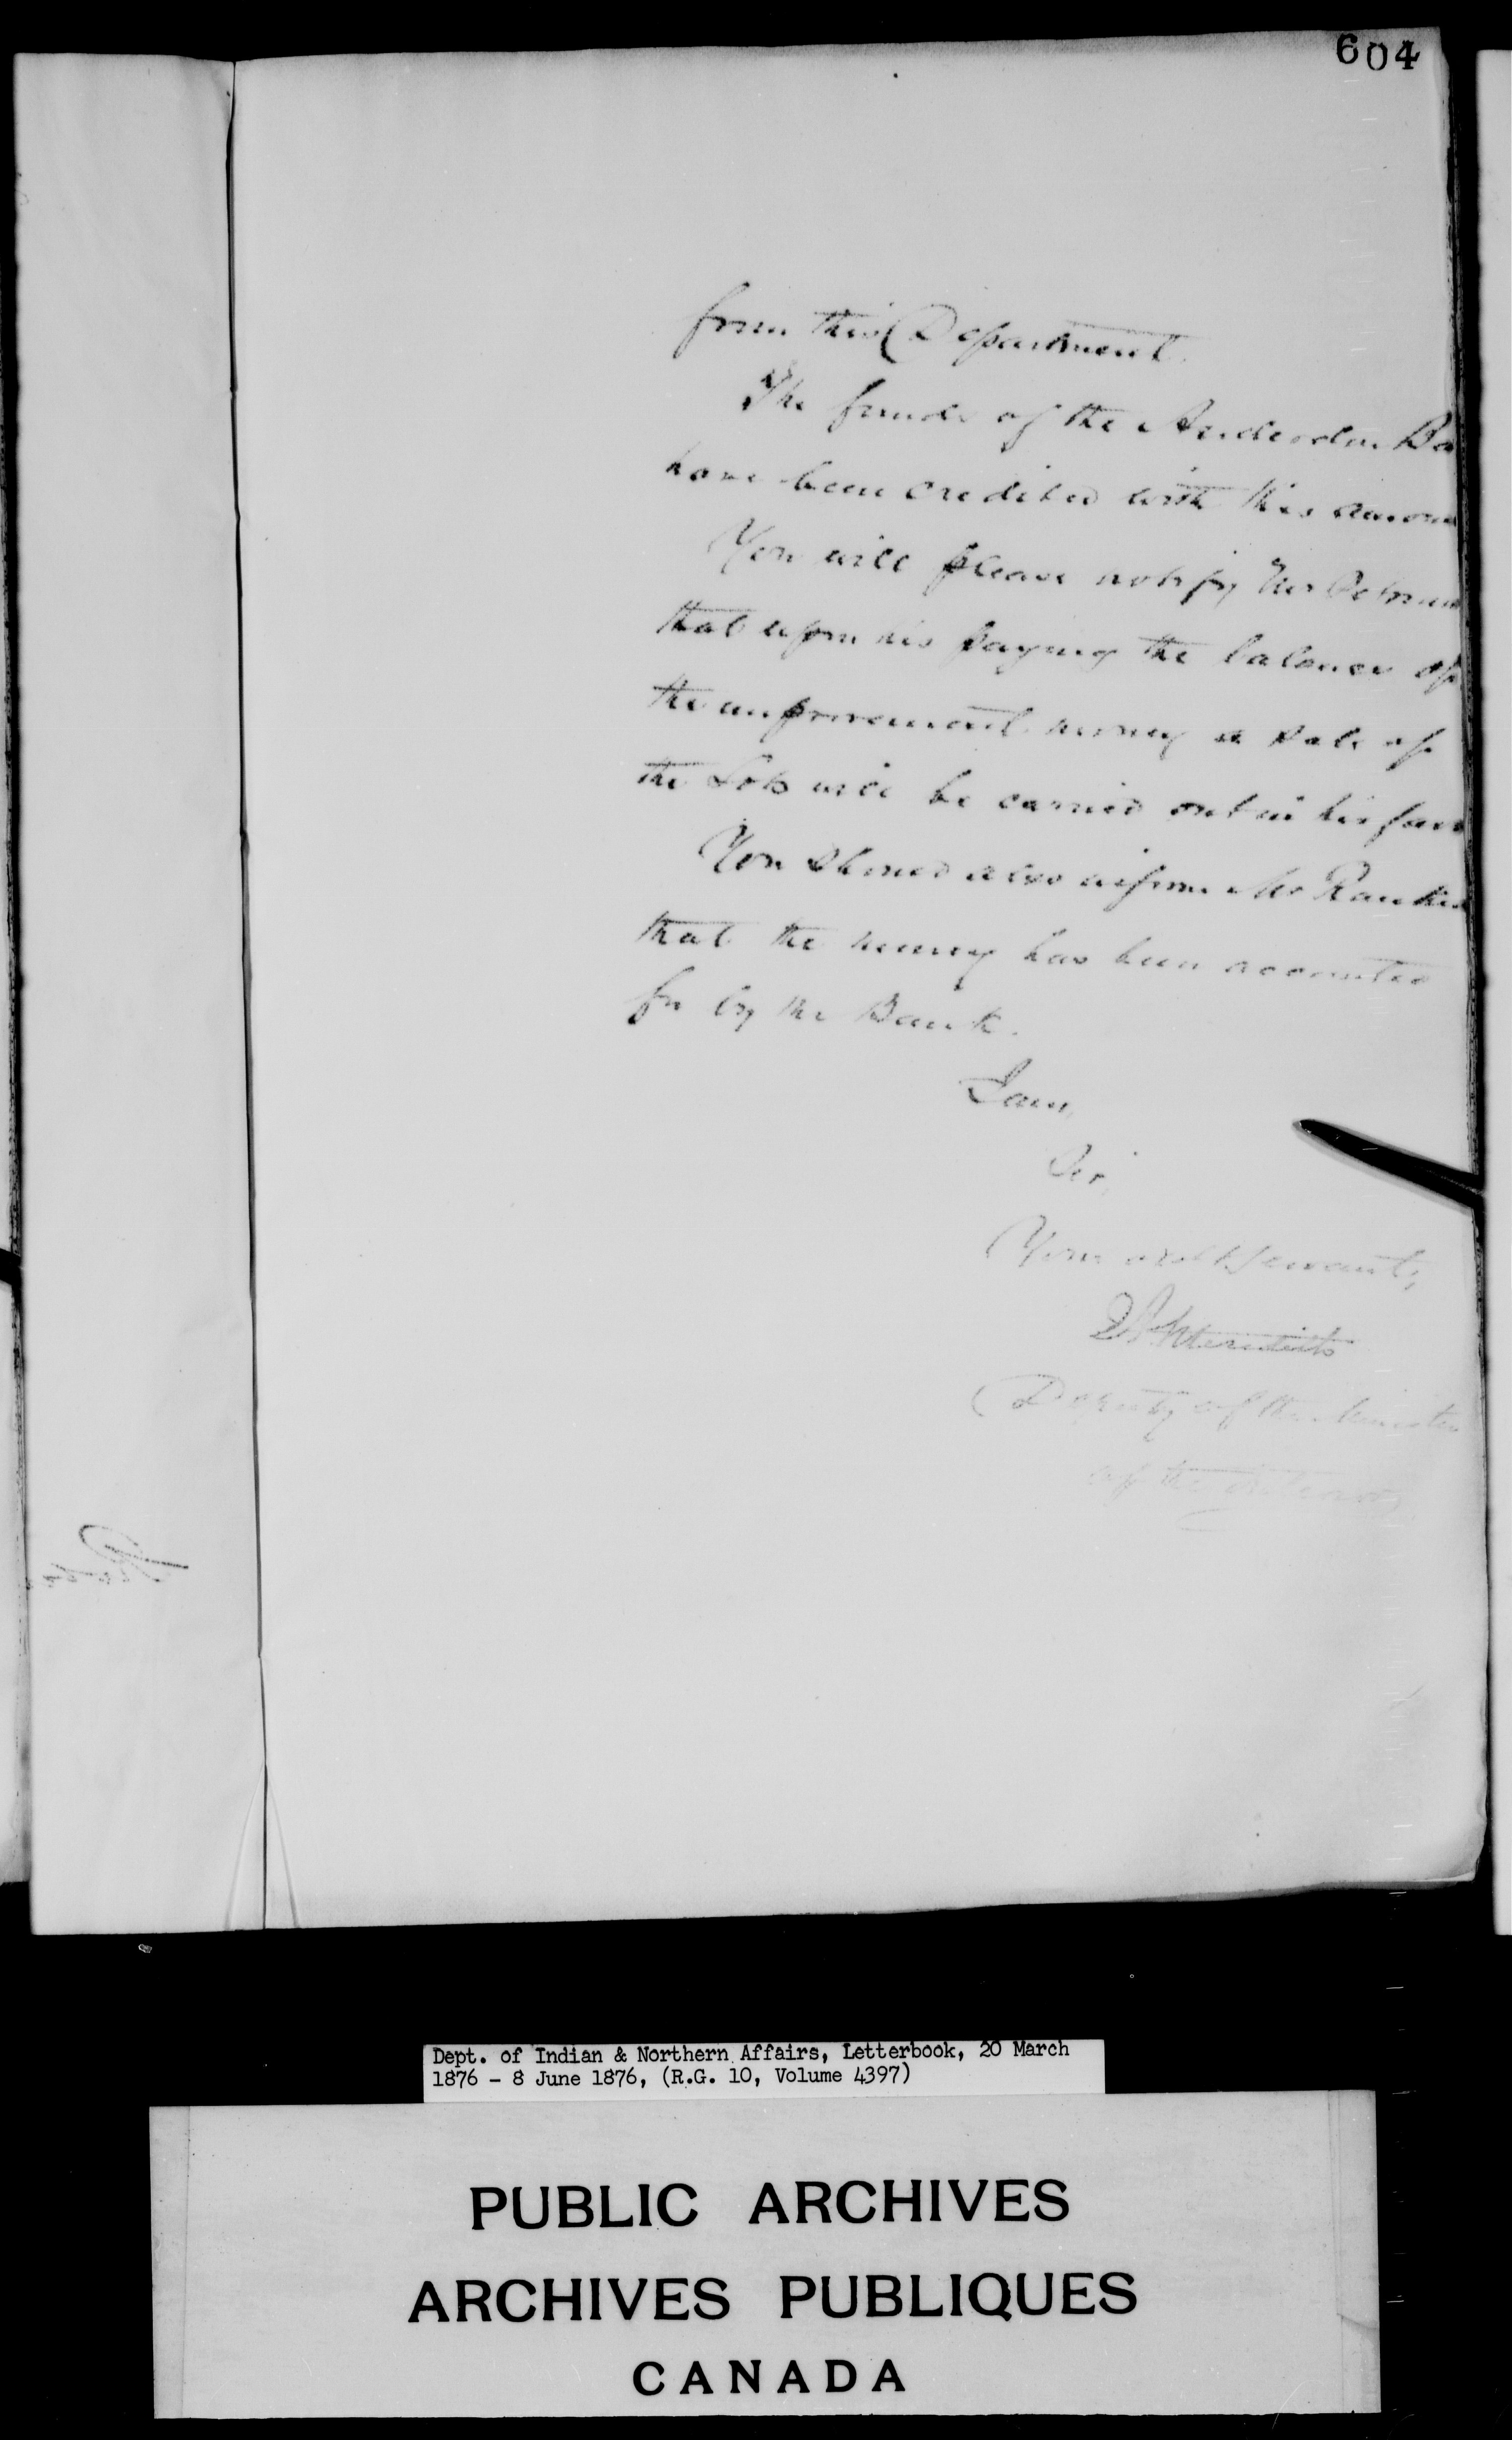 604
from this Department.
The funds of the Anderdon Ba
have been credited with this amoun
You will please notify Mr
that upon his paying the balance of
the improvement money a sale of
the Lots will be carried out in his favo
You should also inform Mr Rankin
that the money has been accounted
for by the Bank.
I am,
Sir,
Your obdt Servant,
E A Meredith
Deputy of the Minister
of the Interior
Dept. of Indian & Northern Affairs, Letterbook, 20 March
1876 - 8 June 1876, (R.G. 10, Volume 4397)
PUBLIC ARCHIVES
ARCHIVES PUBLIQUES
CANADA